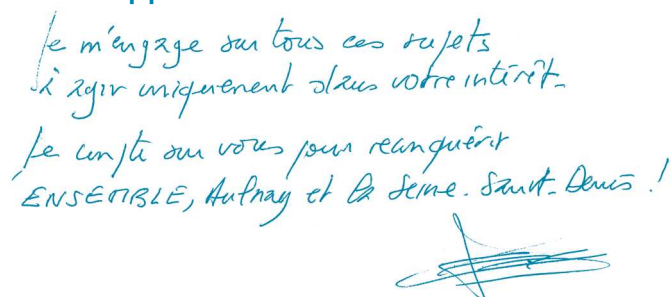 Je m'engage sur tous ces sujets
à agir uniquement dans votre intérêt.
Je compte sur vous pour reconquérir
ENSEMBLE, Aulnay et la Seine-Saint-Denis !